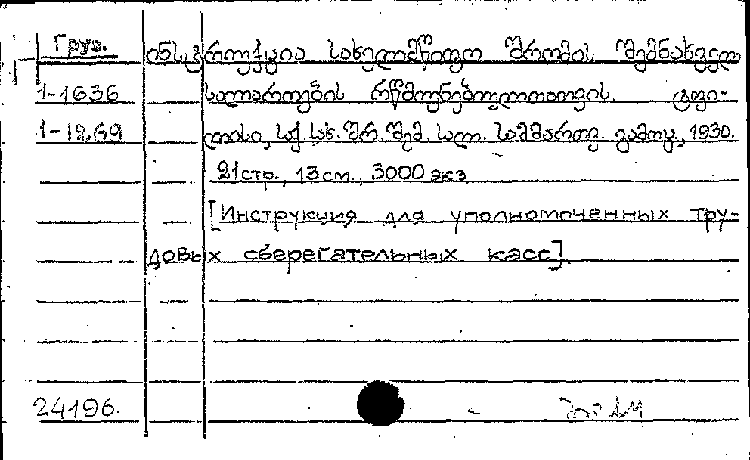 Груз. ინსტრუქცია სახელმწიფო შრომის შემნახველ
1-1636 სალაროების რწმუნებულთათვის. ტფი-
1-1269 ლისი, საქ. სახ. შრ. შემ. სალ. სამმართ. გამოც., 1930.
21 стр., 13 см., 3000 экз.
[Инструкция для уполномоченных тру-
довых сберегательных касс].
24196.